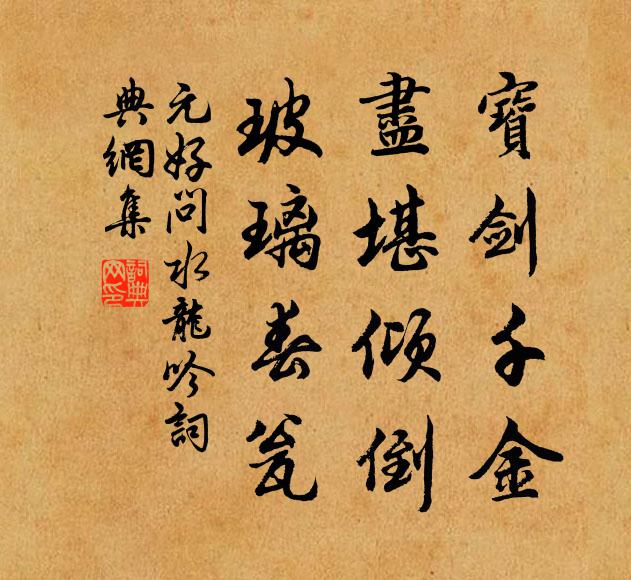 寶劍千金
盡堪傾倒
玻璃春瓮
元好问水龍吟詞
典網集
詞典网印